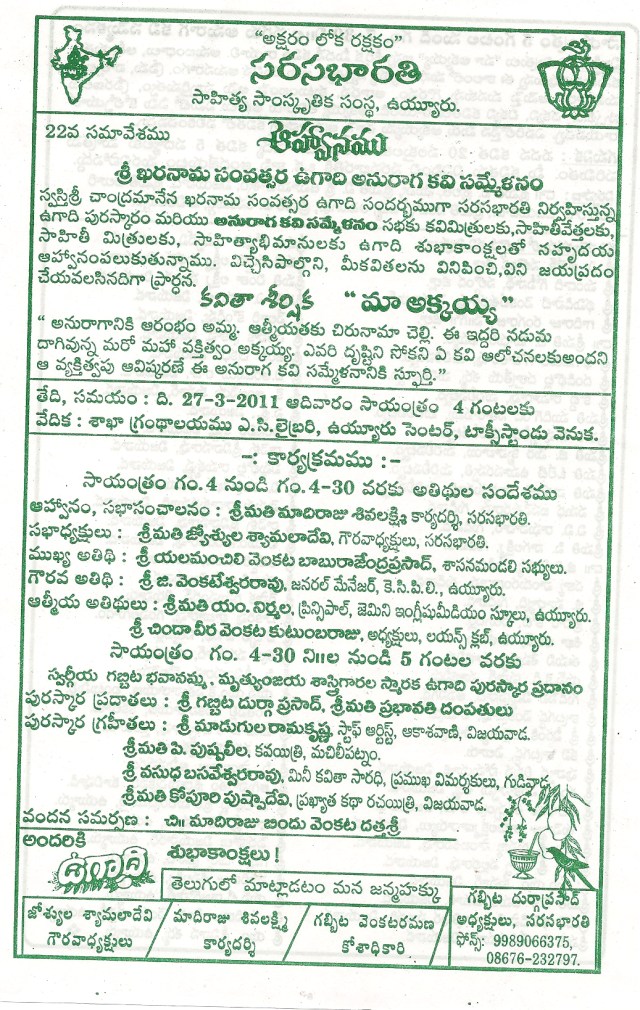 “అక్షరం లోక రక్షకం”
సరసభారతి
సాహిత్య సాంస్కృతిక సంస్థ, ఉయ్యూరు.
22వ సమావేశము
ఆహ్వానము
శ్రీ ఖరనామ సంవత్సర ఉగాది అనురాగ కవి సమ్మేళనం
స్వస్తిశ్రీ చాంద్రమానేన ఖరనామ సంవత్సర ఉగాది సందర్భముగా సరసభారతి నిర్వహిస్తున్న
ఉగాది పురస్కారం మరియు అనురాగ కవి సమ్మేళనం సభకు కవిమిత్రులకు,సాహితీవేత్తలకు,
సాహితీ మిత్రులకు, సాహిత్యాభిమానులకు ఉగాది శుభాకాంక్షలతో సహృదయ
ఆహ్వానంపలుకుతున్నాము. విచ్చేసిపాల్గొని, మీకవితలను వినిపించి,విని జయప్రదం
చేయవలసినదిగా ప్రార్ధన.
కవితా శీర్షిక “ మా అక్కయ్య ”
“ అనురాగానికి ఆరంభం అమ్మ. ఆత్మీయతకు చిరునామా చెల్లి. ఈ ఇద్దరి నడుమ
దాగివున్న మరో మహా వక్తిత్వం అక్కయ్య. ఎవరి దృష్టిని సోకని ఏ కవి ఆలోచనలకుఅందని
ఆ వ్యక్తిత్వపు ఆవిష్కరణే ఈ అనురాగ కవి సమ్మేళనానికి స్ఫూర్తి.”
తేది, సమయం : ది. 27-3-2011 ఆదివారం సాయంత్రం 4 గంటలకు
వేదిక : శాఖా గ్రంథాలయము ఎ.సి.లైబ్రరి, ఉయ్యూరు సెంటర్, టాక్సీస్టాండు వెనుక.
-: కార్యక్రమము :-
సాయంత్రం గం.4 నుండి గం.4-30 వరకు అతిథుల సందేశము
ఆహ్వానం, సభాసంచాలనం : శ్రీమతి మాదిరాజు శివలక్ష్మి కార్యదర్శి, సరసభారతి.
సభాధ్యక్షులు : శ్రీమతి జ్యోశ్యుల శ్యామలాదేవి, గౌరవాధ్యక్షులు, సరసభారతి.
ముఖ్య అతిథి : శ్రీ యలమంచిలి వెంకట బాబురాజేంద్రప్రసాద్, శాసనమండలి సభ్యులు.
గౌరవ అతిథి : శ్రీ జి. వెంకటేశ్వరరావు, జనరల్ మేనేజర్, కె.సి.పి.లి., ఉయ్యూరు.
ఆత్మీయ అతిథులు : శ్రీమతి యం. నిర్మల, ప్రిన్సిపాల్, జెమిని ఇంగ్లీషుమీడియం స్కూలు, ఉయ్యూరు.
శ్రీ చిందా వీర వెంకట కుటుంబరాజు, అధ్యక్షులు, లయన్స్ క్లబ్, ఉయ్యూరు.
సాయంత్రం గం. 4-30 ని॥ల నుండి 5 గంటల వరకు
స్వర్గీయ గబ్బిట భవానమ్మ, మృత్యుంజయ శాస్త్రిగారల స్మారక ఉగాది పురస్కార ప్రదానం
పురస్కార ప్రదాతలు : శ్రీ గబ్బిట దుర్గాప్రసాద్, శ్రీమతి ప్రభావతి దంపతులు
పురస్కార గ్రహీతలు : శ్రీ మాడుగుల రామకృష్ణ, స్టాఫ్ ఆర్టిస్ట్, ఆకాశవాణి, విజయవాడ.
శ్రీమతి పి. పుష్పలీల, కవయిత్రి, మచిలీపట్నం.
శ్రీ వసుధ బసవేశ్వరరావు, మినీ కవితా సారధి, ప్రముఖ విమర్శకులు, గుడివాడ.
శ్రీమతి కోపూరి పుష్పాదేవి, ప్రఖ్యాత కథా రచయిత్రి, విజయవాడ.
వందన సమర్పణ : చి॥ మాదిరాజు బిందు వెంకట దత్తశ్రీ
అందరికి
ఉగాది శుభాకాంక్షలు!
తెలుగులో మాట్లాడటం మన జన్మహక్కు
జోశ్యుల శ్యామలాదేవి
గౌరవాధ్యక్షులు
మాదిరాజు శివలక్ష్మి
కార్యదర్శి
గబ్బిట వెంకటరమణ
కోశాధికారి
గబ్బిట దుర్గాప్రసాద్
అధ్యక్షులు, సరసభారతి
ఫోన్స్: 9989066375,
08676-232797.